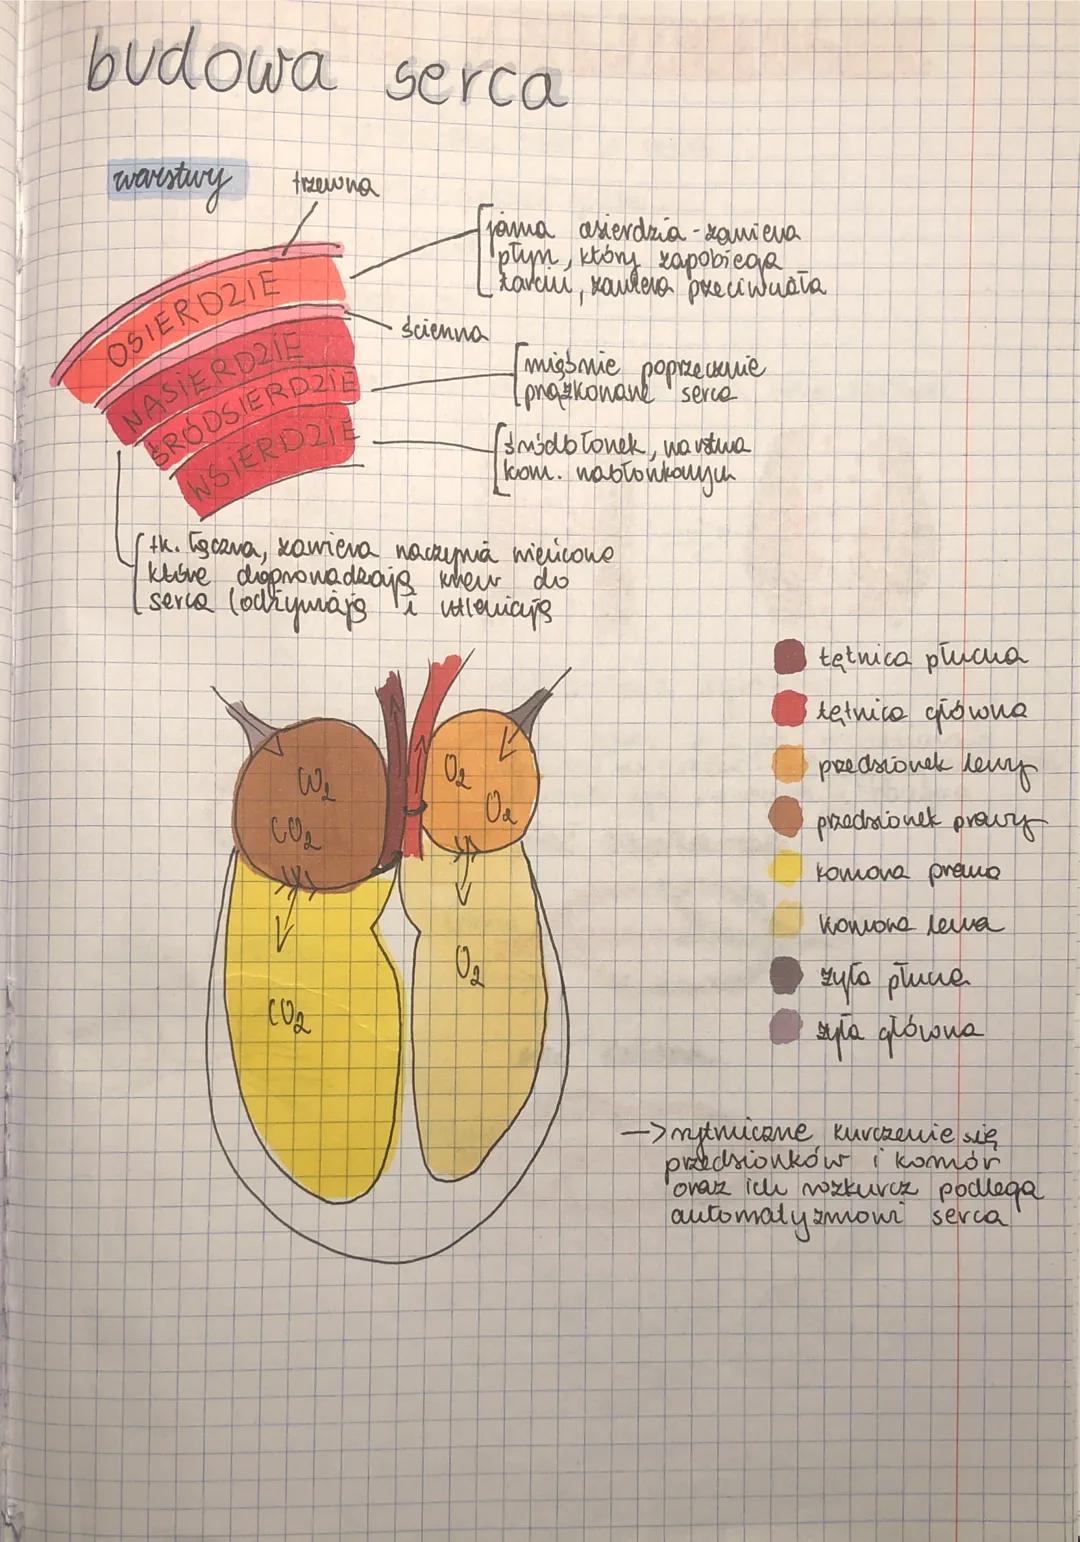 budowa serca
warstwy
trzewna
jama osierdzia - zawiera
płyn, który zapobiega
tarciu, zawiera przeciwciała
OSIERDZIE
ścienna
NASIERDZIE
mięśnie poprzecznie
prążkowane serca
ŚRÓDSIERDZIE
śródbłonek, warstwa
kom. nabłonkowych
WSIERDZIE
tk. łączna, zawiera naczynia wieńcowe
które doprowadzają krew do
serca (odżywiają i utleniają
tętnica płucna
tętnica główna
przedsionek lewy
przedsionek prawy
komora prawa
komora lewa
żyła płucna
żyła główna
CO2
CO2
O2
O2
CO2
O2
-> rytmiczne kurczenie się
przedsionków i komór
oraz ich rozkurcz podlega
automatyzmowi serca